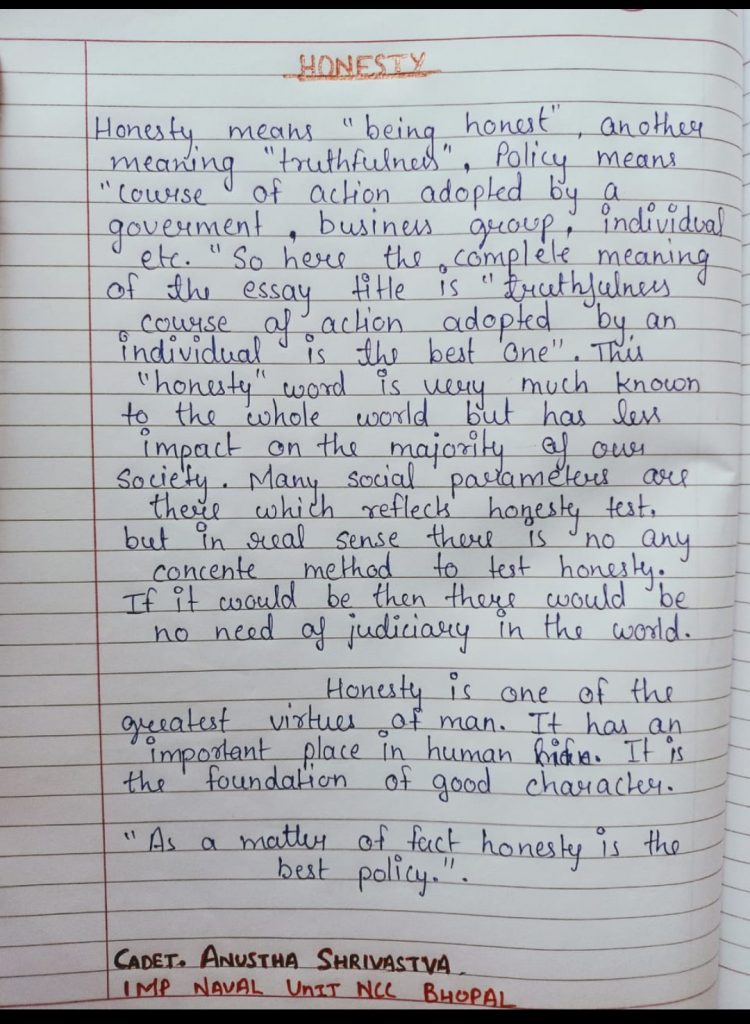 HONESTY
Honesty means "being honest", another
meaning "truthfulness", Policy means
"course of action adopted by a
goverment, business group, individual
etc. "So here the complete meaning
of the essay title is "truthfulness
course of action adopted by an
individual is the best one". This
"honesty" word is very much known
to the whole world but has less
impact on the majority of our
society. Many social parameters are
there which reflects honesty test.
but in real sense there is no any
concente method to test honesty.
If it would be then there would be
no need of judiciary in the world.
Honesty is one of the
greatest virtues of man. It has an
important place in human. It is
the foundation of good character.
"As a matter of fact honesty is the
best policy.".
CADET. ANUSTHA SHRIVASTVA
1 MP NAVAL UNIT NCC BHOPAL